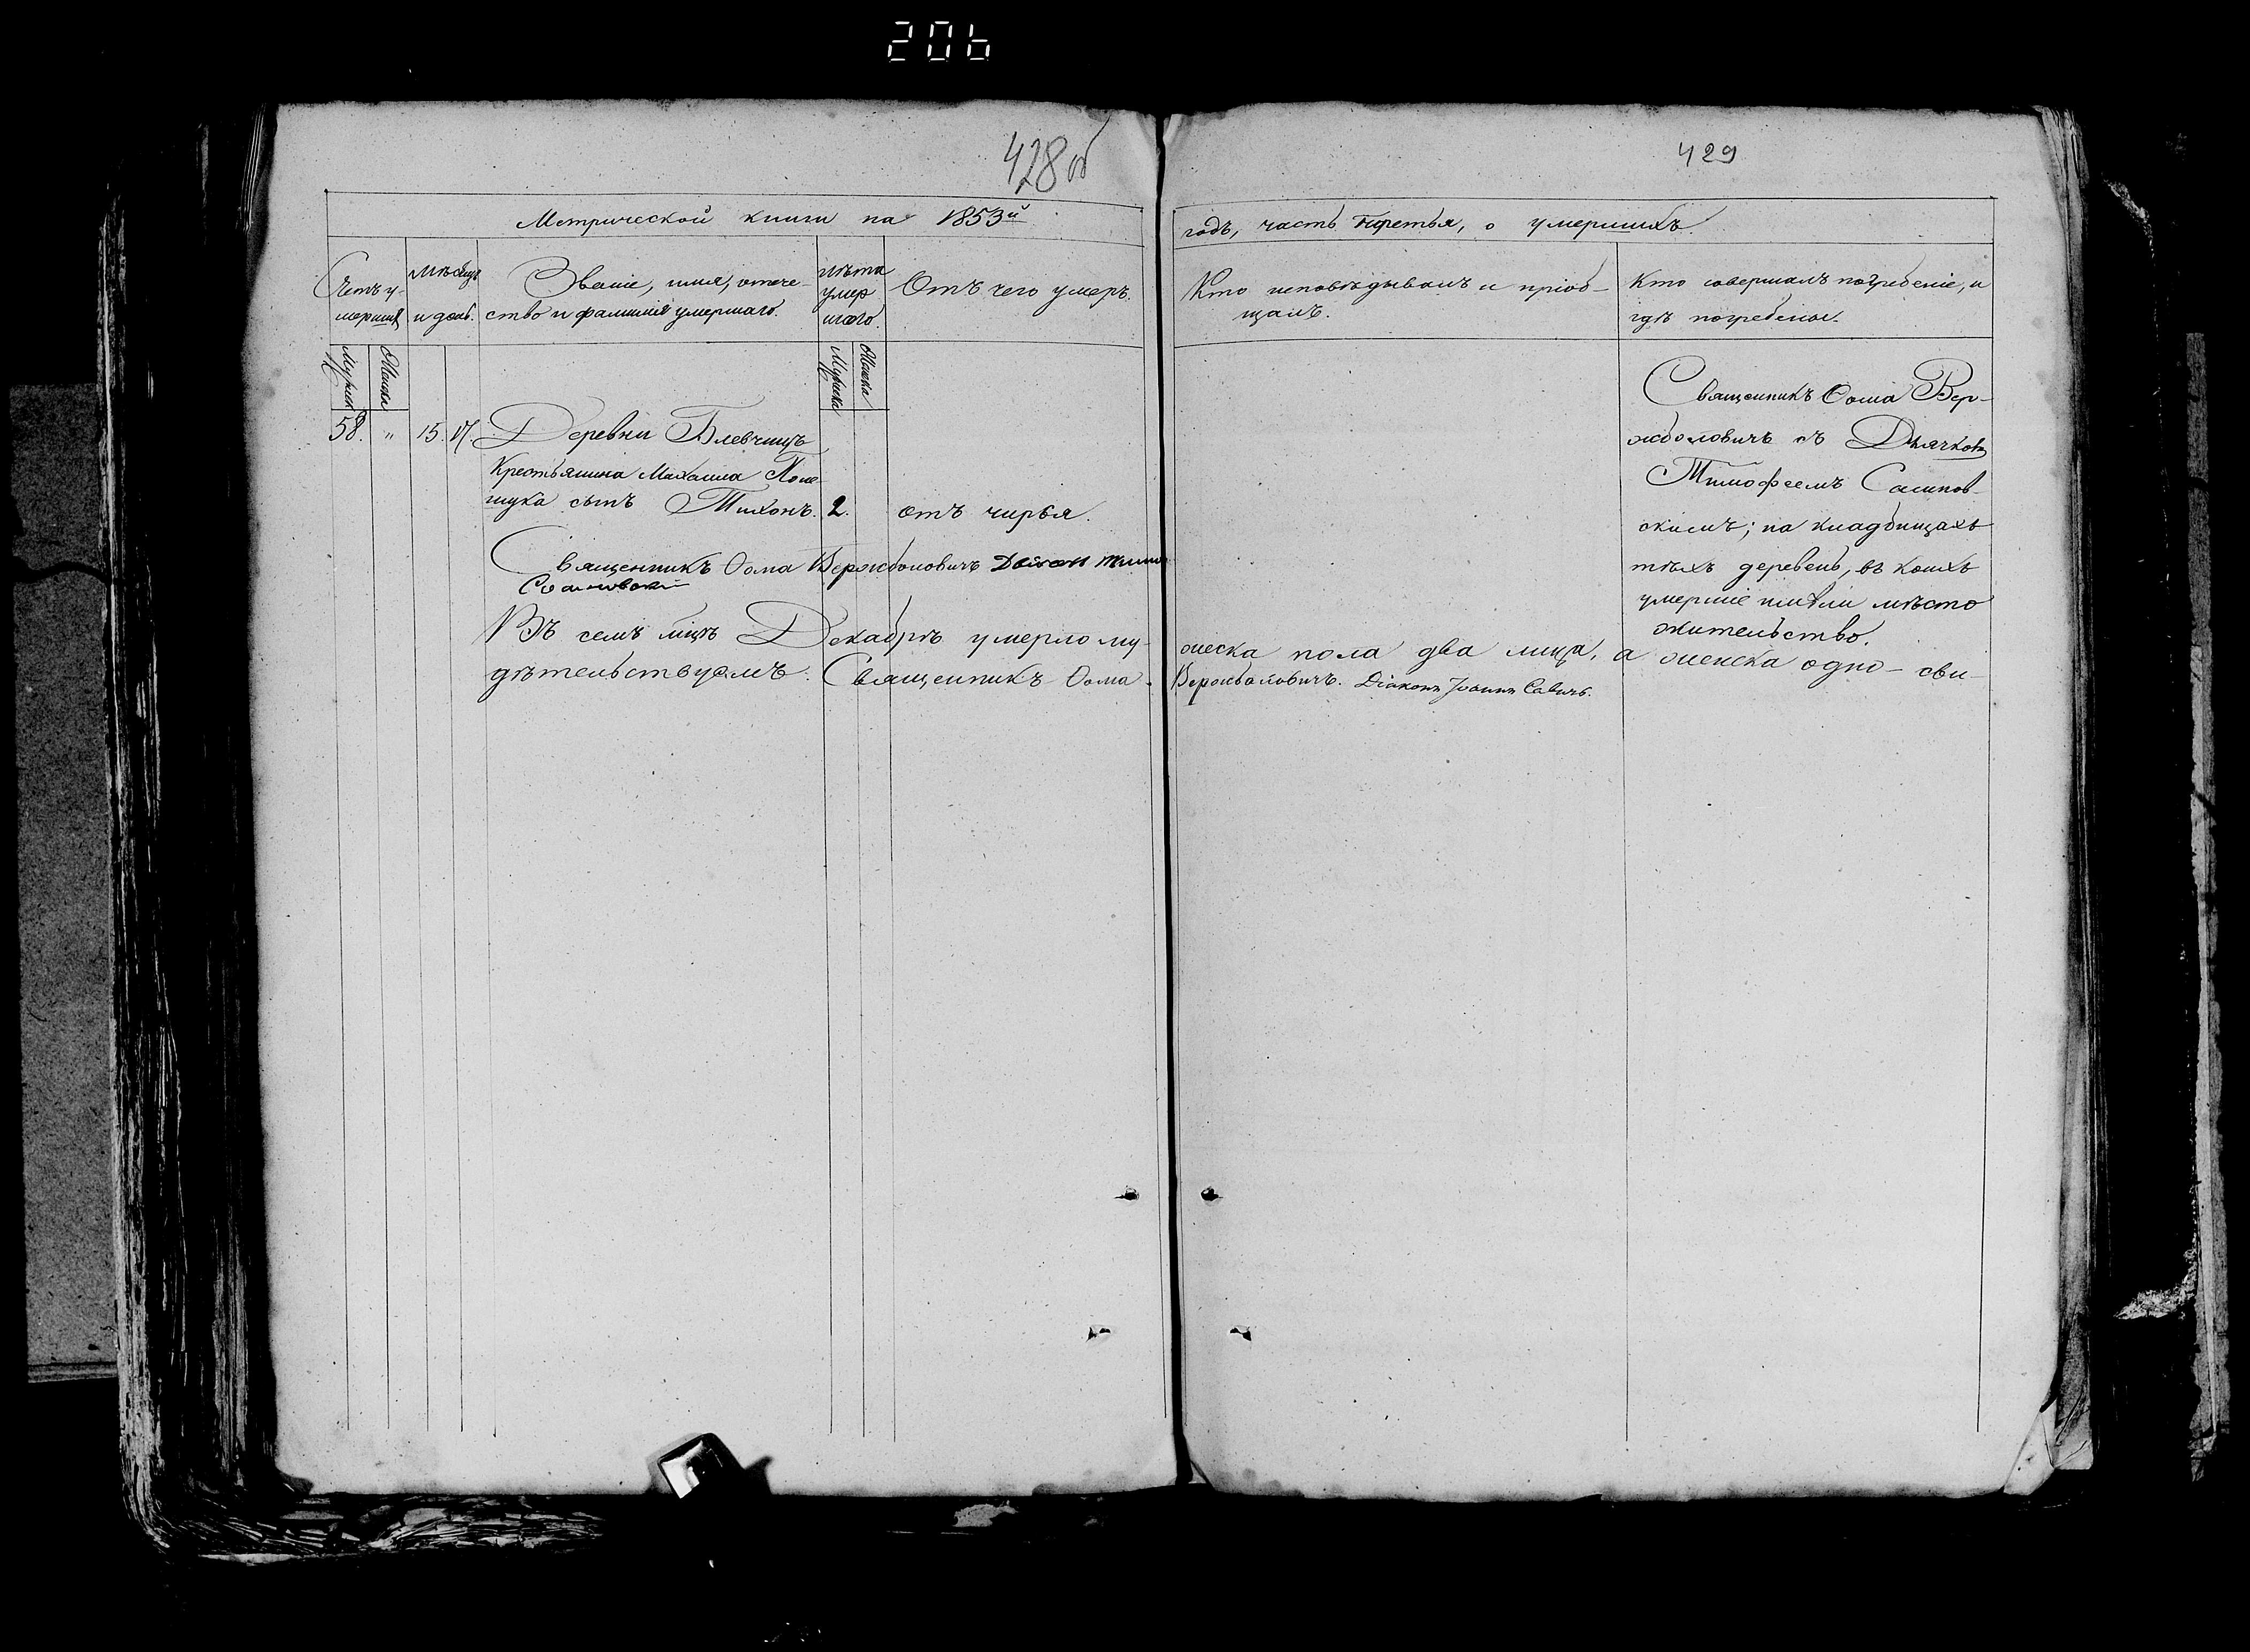 206
428 об
429
Метрической книги на 1853й
годъ, часть третья, о умершихъ.
Счетъ у-
мершихъ
Мѣсяцъ
и день.
Званіе, имя, отече-
ство и фамилія умершаго.
Лѣта
умер
шаго.
Отъ чего умеръ.
Кто исповѣдывалъ и пріоб-
щалъ.
Кто совершалъ погребеніе, и
гдѣ погребены.
Мужеска
Женска
Мужеска
Женска
58. " 15. 17. Деревни Блевчицъ
Крестьянина Михаила Поле-
щука сынъ Тихонъ. 2. отъ чирья.
Священникъ Ѳома Вер-
жболовичъ съ Дьячкомъ
Тимофеемъ
скимъ; на кладбищахъ
тѣхъ деревень, въ коихъ
умершіе имѣли мѣсто
жительство.
Священникъ Ѳома Вержболовичъ
Въ семъ мцѣ Декабрѣ умерло му-
жеска пола два лица, а женска одно – сви-
дѣтельствуемъ. Священникъ Ѳома
Вержболовичъ. Діаконъ Іоаннъ Савичъ.